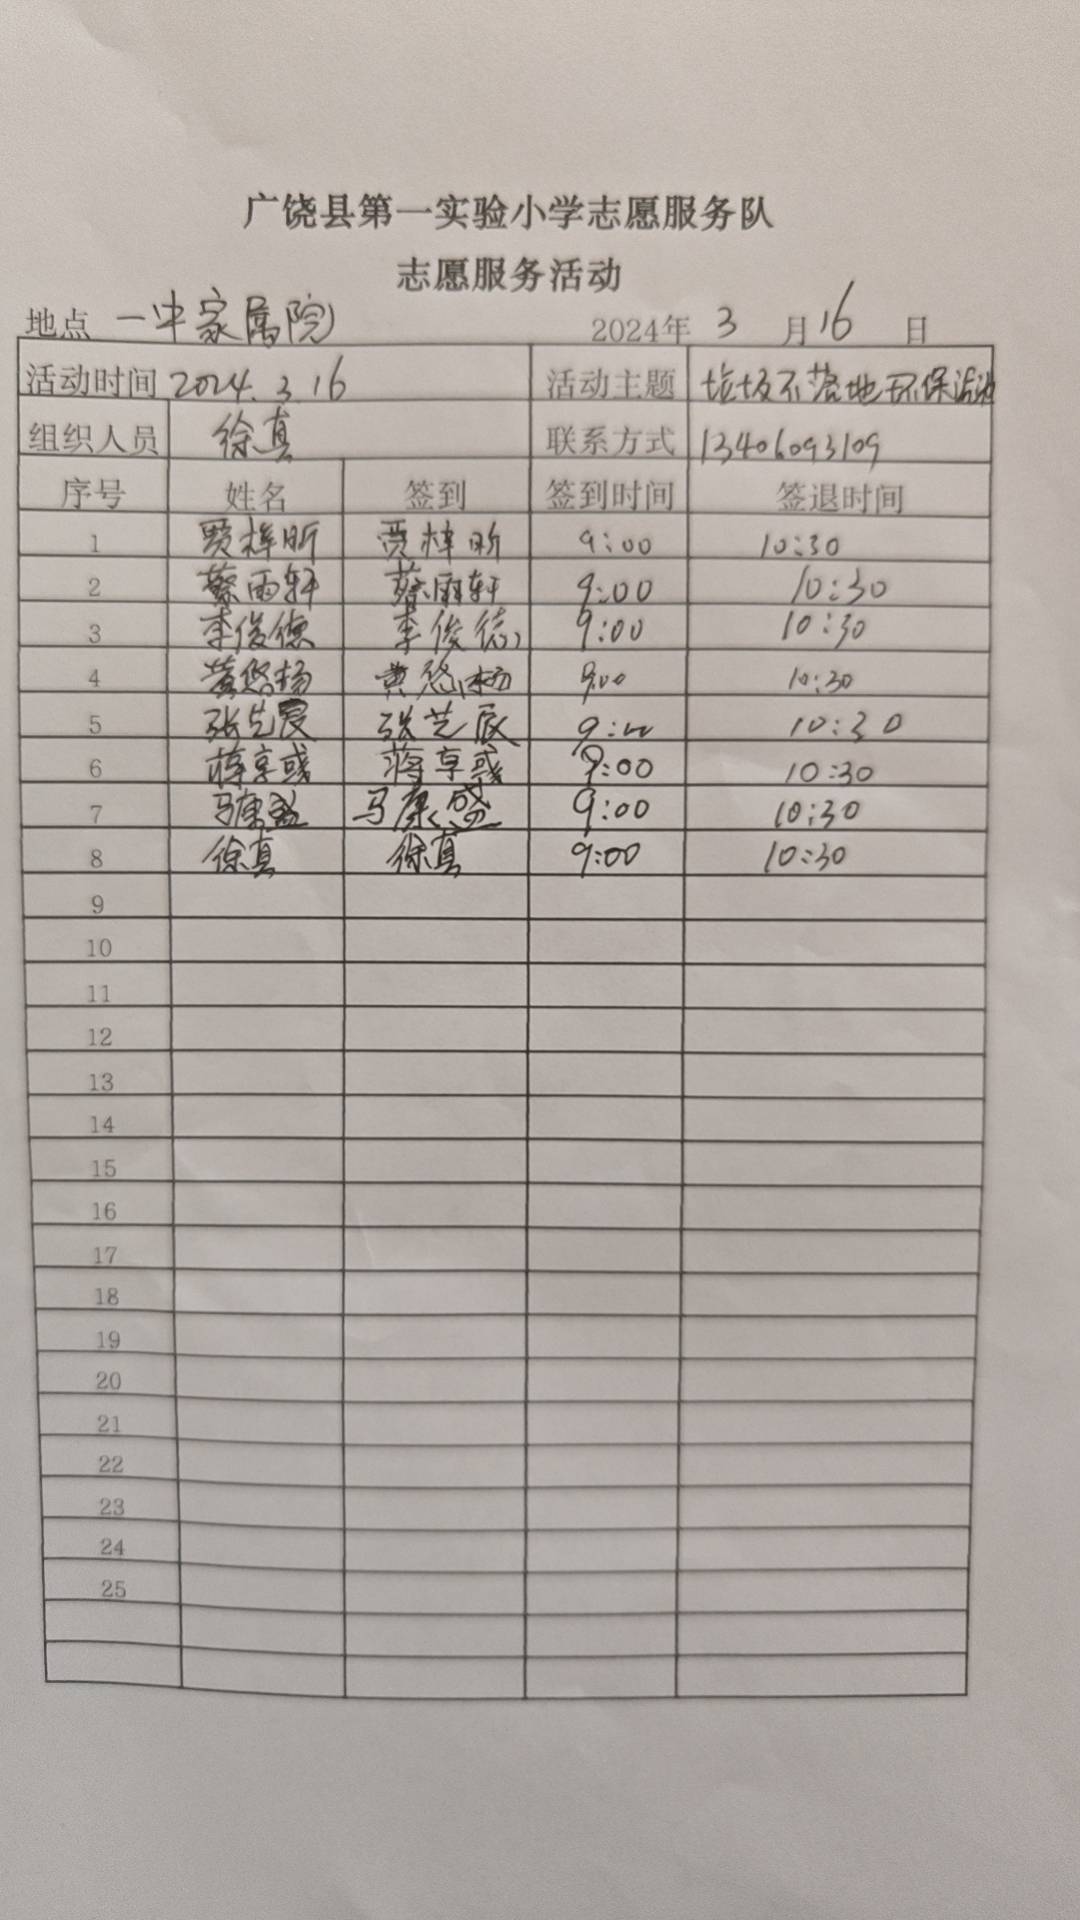 广饶县第一实验小学志愿服务队
志愿服务活动
地点 一中家属院 2024年 3 月 16 日
活动时间 2024.3.16 活动主题 垃圾不落地环保活动
组织人员 徐真 联系方式 13406093109
序号 姓名 签到 签到时间 签退时间
1 贾梓昕 贾梓昕 9:00 10:30
2 蔡雨轩 蔡雨轩 9:00 10:30
3 李俊德 李俊德 9:00 10:30
4 黄悠杨 黄悠杨 9:00 10:30
5 张艺宸 张艺辰 9:00 10:30
6 蒋享彧 蒋享彧 9:00 10:30
7 马康盛 马康盛 9:00 10:30
8 徐真 徐真 9:00 10:30
9
10
11
12
13
14
15
16
17
18
19
20
21
22
23
24
25